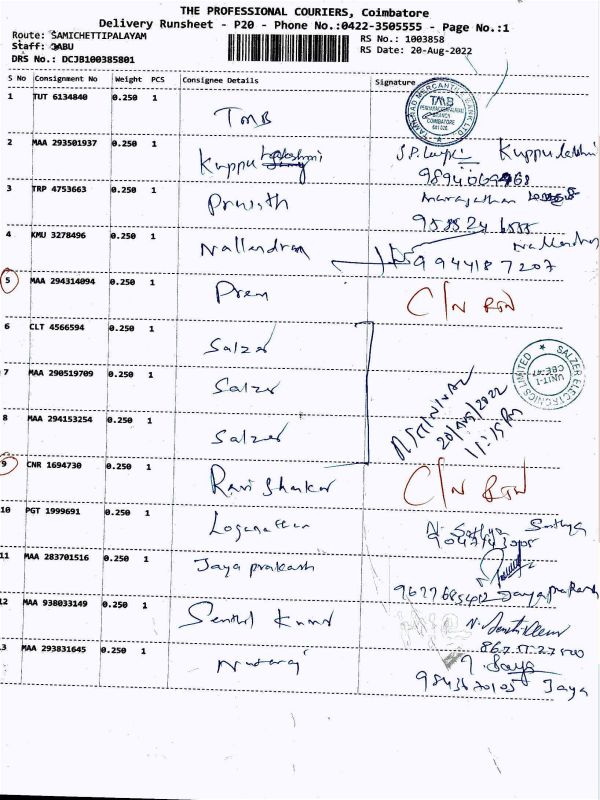 THE PROFESSIONAL COURIERS, Coimbatore
Delivery Runsheet - P20 - Phone No.:0422-3505555 - Page No.:1
Route: SAMICHETTIPALAYAM
Staff: JABU
DRS No.: DCJB100385801
RS No.: 1003858
RS Date: 20-Aug-2022
S No Consignment No Weight PCS Consignee Details Signature
1 TUT 6134840 0.250 1 TMB
TAMILNAD MERCANTILE BANK LTD TMB BRANCH COIMBATORE
2 MAA 293501937 0.250 1 Kuppu Kuppulakshmi
3 TRP 4753663 0.250 1
4 KMU 3278496 0.250 1 Nallendran
9944187207
5 MAA 294314094 0.250 1 Prem C/N RTN
6 CLT 4566594 0.250 1 Salzer
7 MAA 290519709 0.250 1 Salzer
SALZER ELECTRONICS LIMITED UNIT-1 CBE-47
8 MAA 294153254 0.250 1 Salzer
20/Aug/2022
11:15 Am
9 CNR 1694730 0.250 1 Ravi Shankar C/N RTN
10 PGT 1999691 0.250 1 Loganathan N. Sathya Sathya
11 MAA 283701516 0.250 1 Jaya prakash
Jayaprakash
12 MAA 938033149 0.250 1 Senthil Kumar
13 MAA 293831645 0.250 1 Nataraj
Jaya